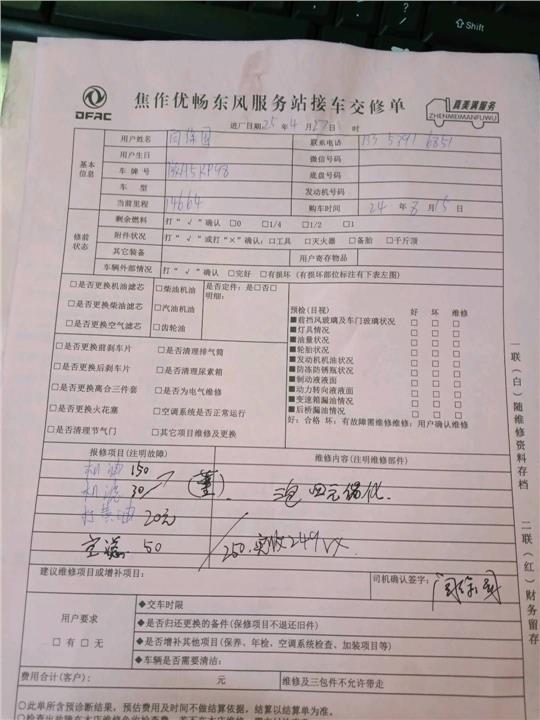 Shift
DFAC
焦作优畅东风服务站接车交修单
真美满服务
ZHENMEIMANFUWU
进厂日期:25 年 4 月 27 日 时
基本信息
用户姓名
联系电话
用户生日
微信号码
车 牌 号
底盘号码
车 型
发动机号码
当前里程 14664
购车时间 24 年 8 月 15 日
修前状态
剩余燃料 打“√”确认 □0 □1/4 □1/2 □1
附件状况 打“√”或打“×”确认:□工具 □灭火器 □备胎 □千斤顶
其它装备 用户寄存物品
车辆外部情况 打“√”确认 □完好 □有损坏(有损坏部位标注有下表左图)
□是否更换机油滤芯 □柴油机油
□是否更换柴油滤芯 □汽油机油
□是否更换空气滤芯 □齿轮油
是否定件:是□否□
明细:
□是否更换前刹车片 □是否清理排气筒
□是否更换后刹车片 □是否清理尿素箱
□是否更换离合三件套 □是否为电气维修
□是否更换火花塞 □空调系统是否正常运行
□是否清理节气门 □其它项目维修及更换
预检(目视) 好 坏 维修
■前挡风玻璃及车门玻璃状况 □ □ □
■灯具情况 □ □ □
■油量状况 □ □ □
■轮胎状况 □ □ □
■发动机机油状况 □ □ □
■防冻防锈瓶状况 □ □ □
■制动液液面 □ □ □
■动力转向液液面 □ □ □
■变速箱漏油情况 □ □ □
■后桥漏油情况 □ □ □
好:合格 坏:有故障需维修维修:用户确认维修
报修项目(注明故障) 维修内容(注明维修部件)
机油 150
机滤 30
打黄油 20元
空滤 50
250.实收249
建议维修项目或增补项目:
司机确认签字:
用户要求
□有 □无
◆交车时限
◆是否归还更换的备件(保修项目不退还旧件)
◆是否增补其他项目(保养、年检、空调系统检查、加装项目等)
◆车辆是否需要清洁:
费用合计(客户): 元 维修及三包件不允许带走
○此单所含预诊断结果,预估费用及时间不做结算依据,结算以结算单为准。
一联(白)随维修资料存档
二联(红)财务留存